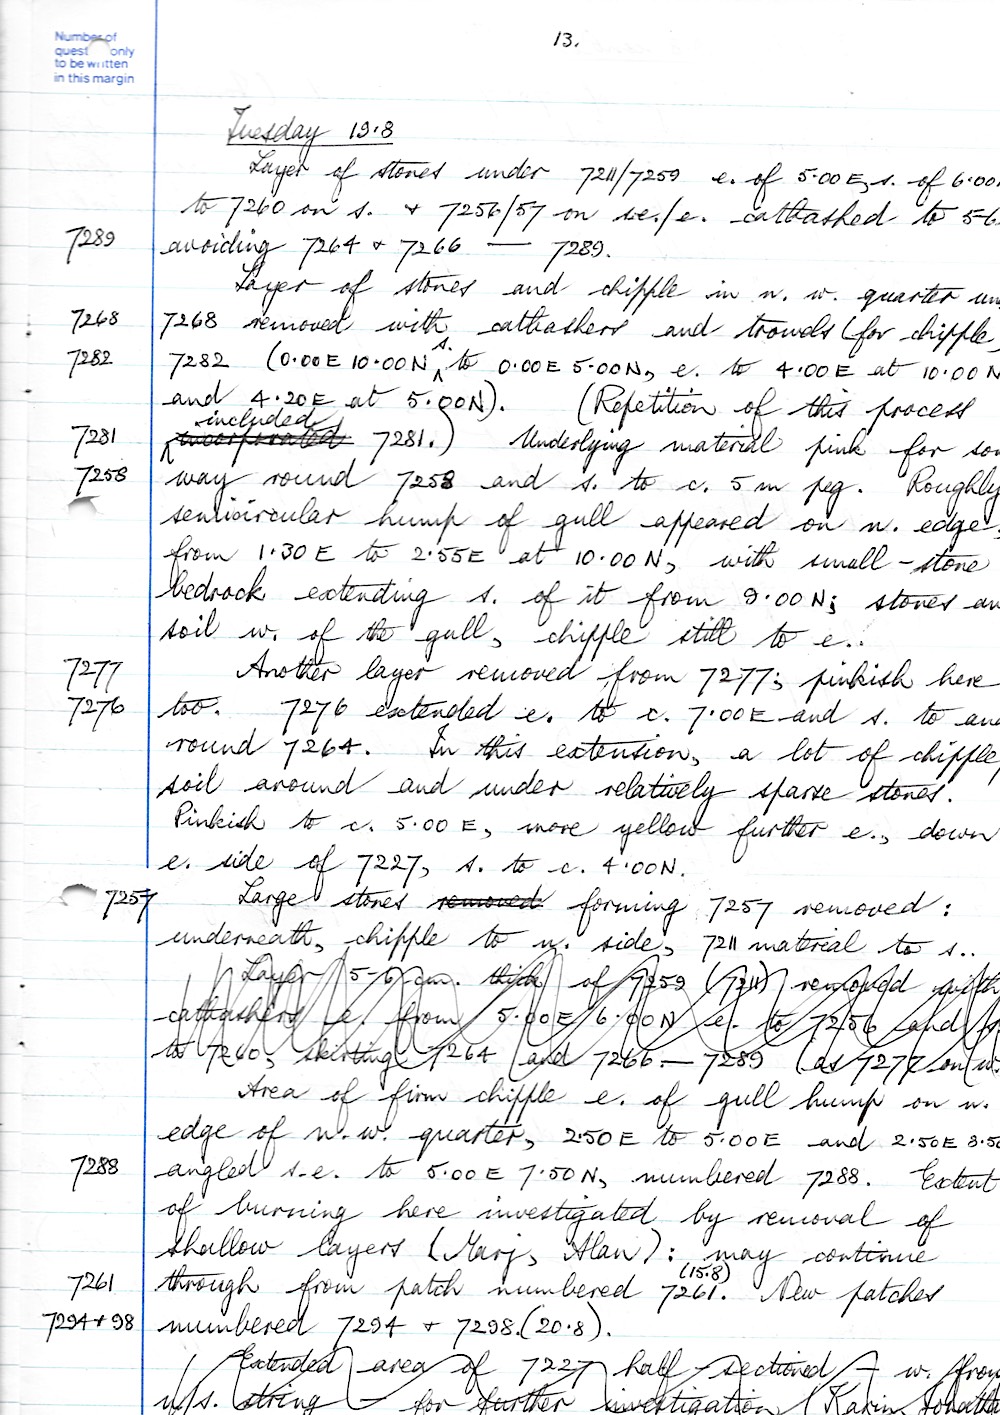 Number of
quest only
to be written
in this margin
13.
Tuesday 19.8
Layer of stones under 7211/7259 e. of 5.00E, s. of 6.00
to 7260 on s. + 7256/57 on s.e./e. cattashed to 5-6
7289 avoiding 7264 + 7266 — 7289.
Layer of stones and chipple in n. w. quarter un
7268 7268 removed with cattashers and trowels (for chipple,
7282 7282 (0.00E 10.00N s. to 0.00E 5.00N, e. to 4.00E at 10.00N
and 4.20E at 5.00N). (Repetition of this process
included
7281 incorporated 7281.) Underlying material pink for so
7258 way round 7258 and s. to c. 5 m peg. Roughly
semicircular hump of gull appeared on n. edge,
from 1.30E to 2.55E at 10.00N, with small-stone
bedrock extending s. of it from 9.00N; stones an
soil w. of the gull, chipple still to e..
7277 Another layer removed from 7277; pinkish here
7276 too. 7276 extended e. to c. 7.00E and s. to an
round 7264. In this extension, a lot of chipple,
soil around and under relatively sparse stones.
Pinkish to c. 5.00E, more yellow further e., down
e. side of 7227, s. to c. 4.00N.
7257 Large stones removed forming 7257 removed:
underneath, chipple to n. side, 7211 material to s..
Layer 5-6 cm. thick of 7259 (7211) removed with
cattashers e. from 5.00E/6.00N e. to 7256 and s
to 7260, skirting 7264 (and 7266 — 7289 (as 7277 on w.
Area of firm chipple e. of gull hump on n.
edge of n.w. quarter, 2.50E to 5.00E and 2.50E 8.50
7288 angled s.e. to 5.00E 7.50N, numbered 7288. Extent
of burning here investigated by removal of
shallow layers (Marj, Alan): may continue
(15.8)
7261 through from patch numbered 7261. New patches
7294 + 98 numbered 7294 + 7298. (20.8).
Extended area of 7227 half sectioned – w. from
n/s. string – for further investigation (Karin,